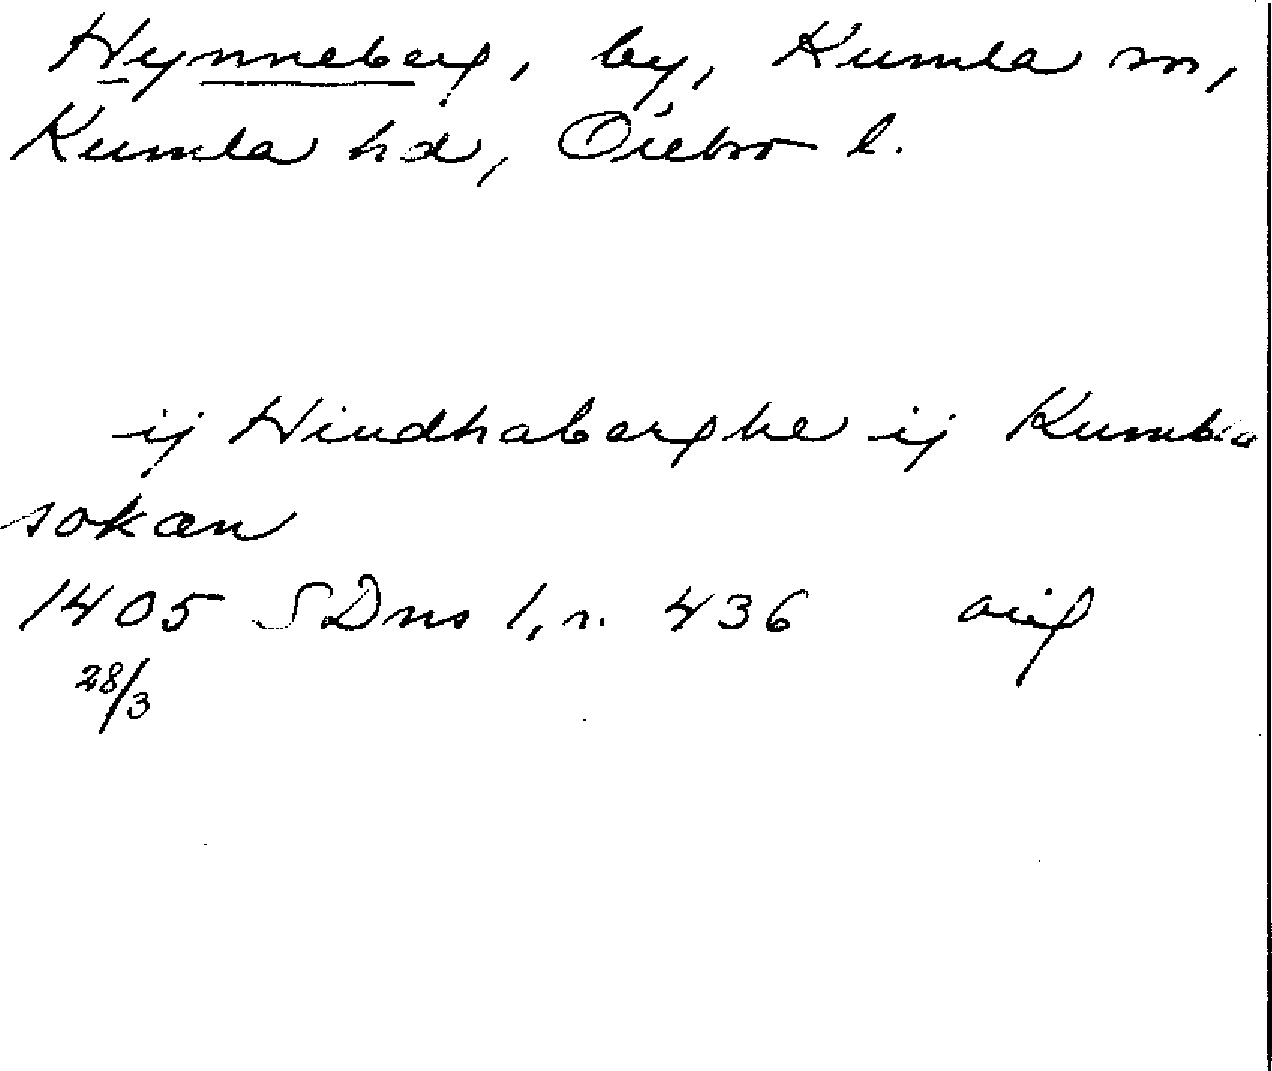 Hynneberg, by, Kumla sn,
Kumla hd, Örebro l.
ij Hindhaberghe ij Kumbla
sokæn
1405 SDns 1, n. 436 orig
28/3